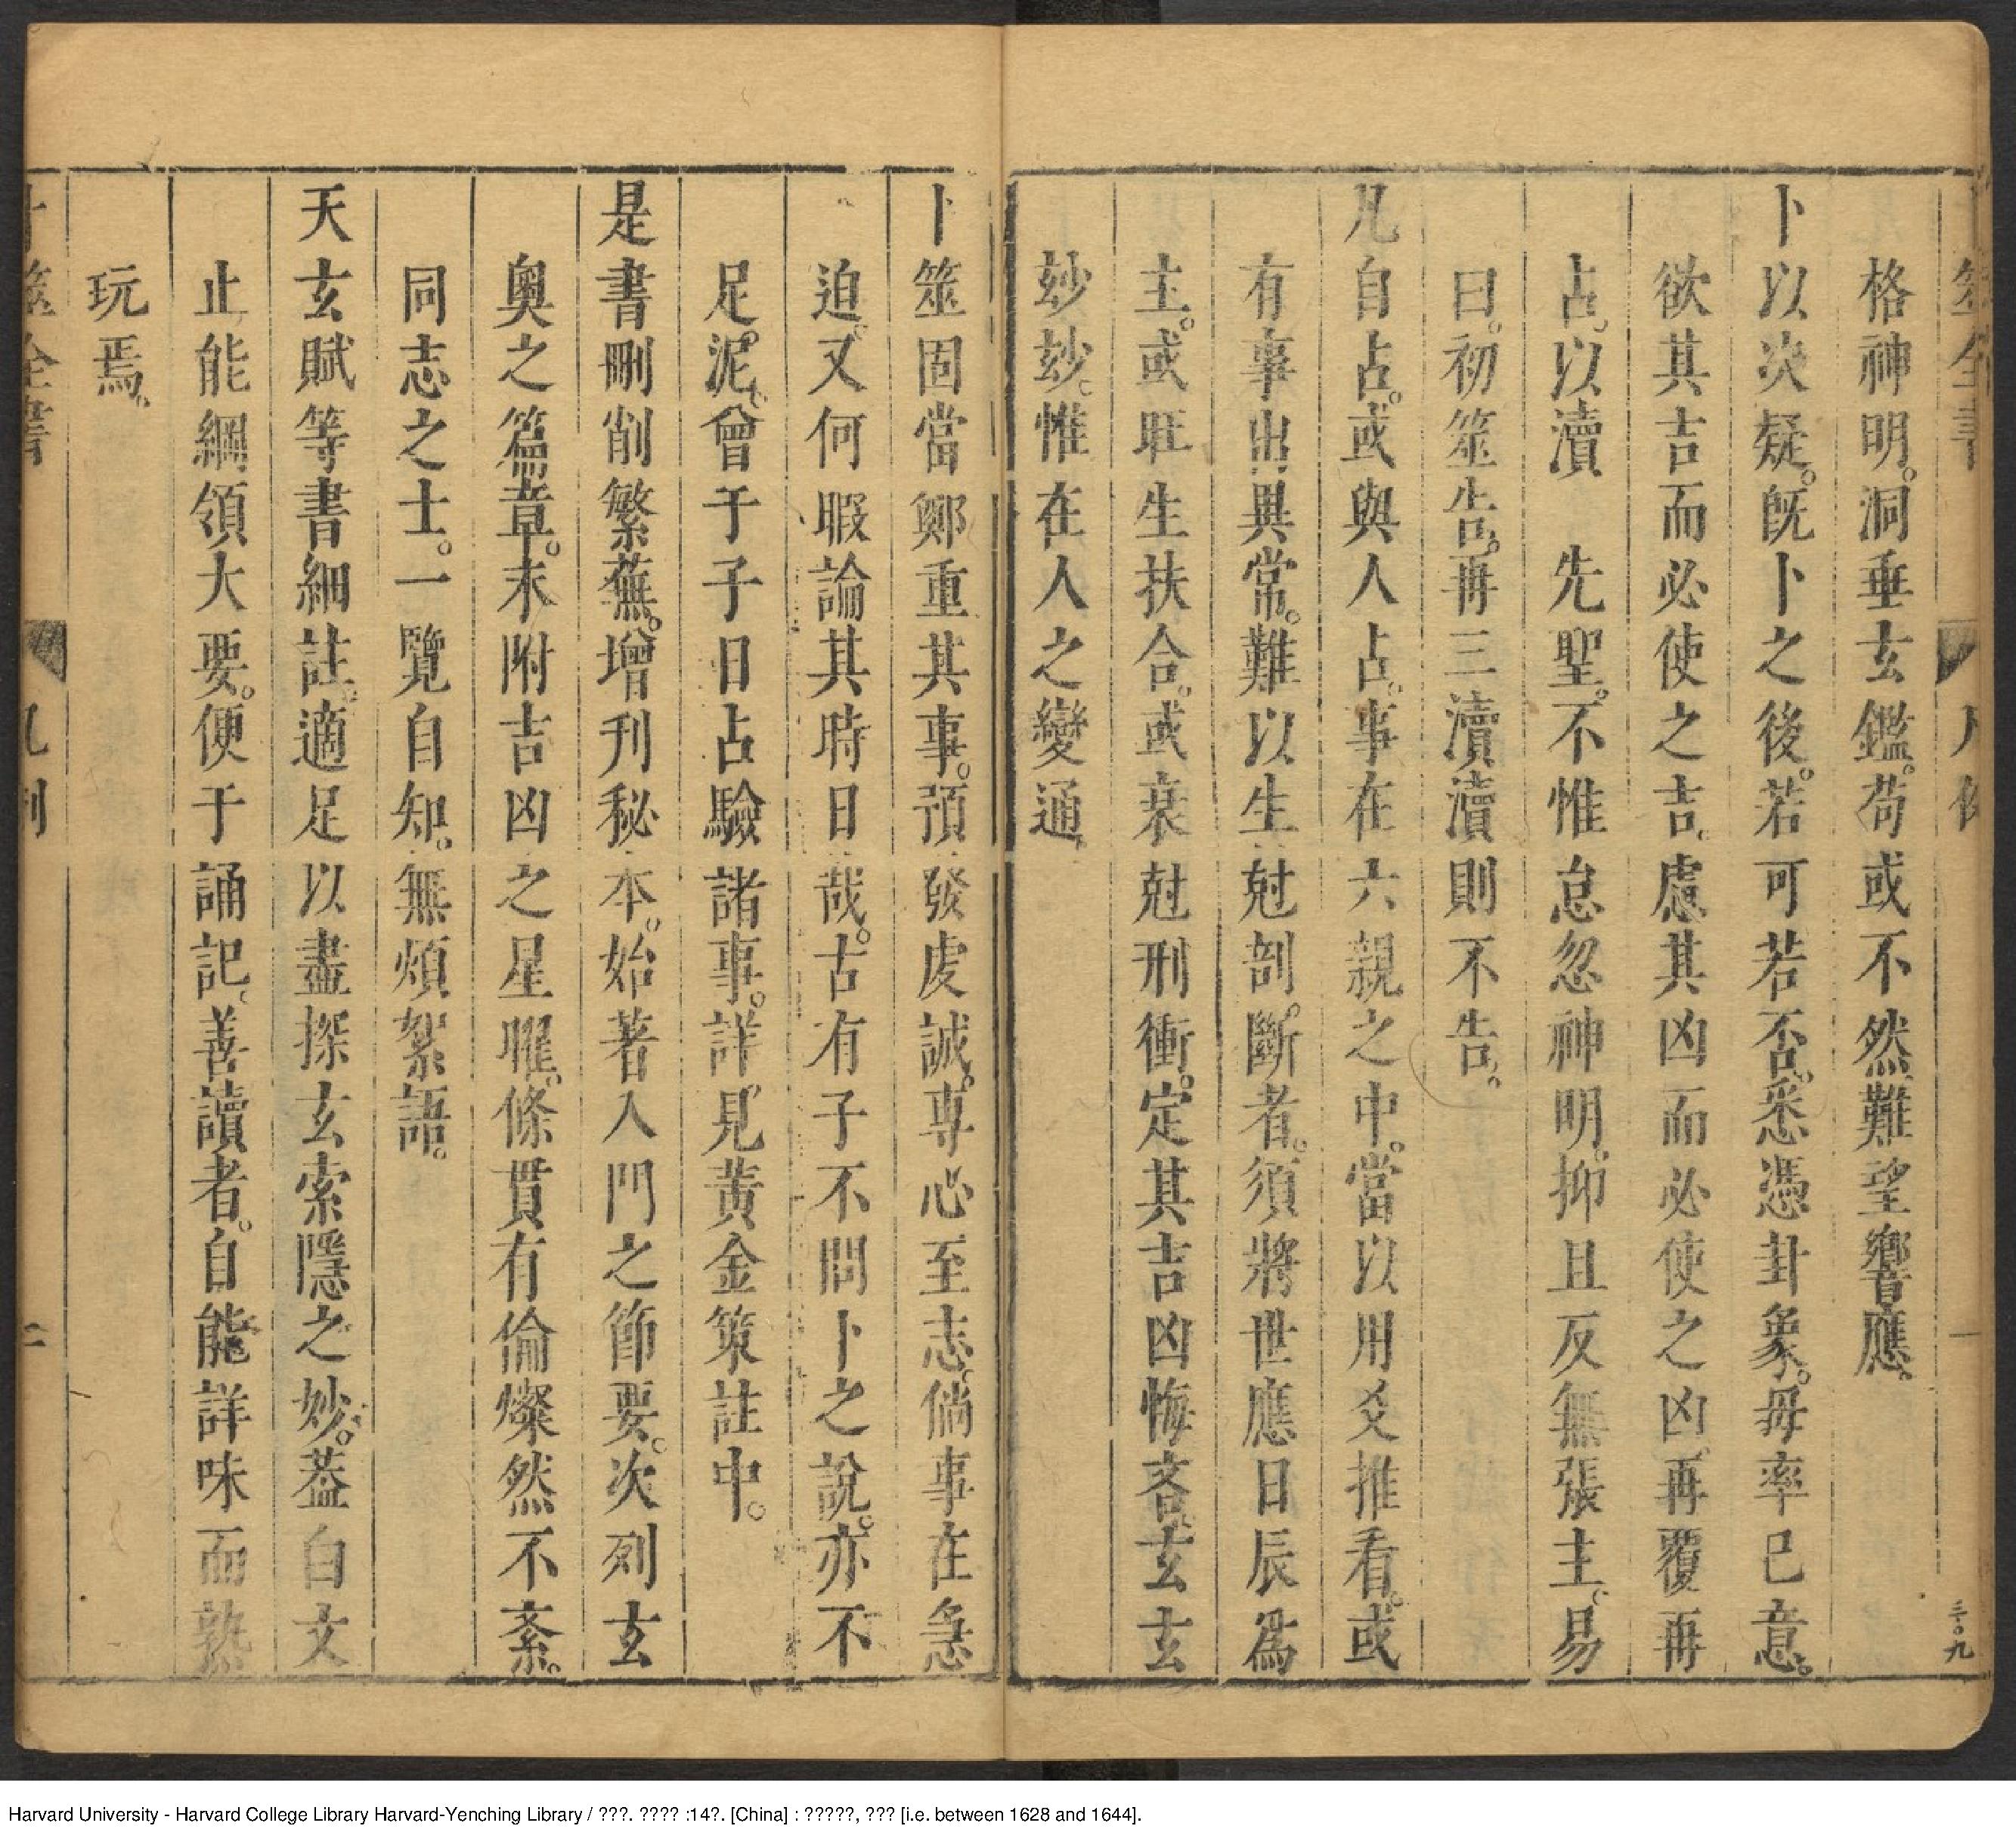 格神明。洞垂玄鑑。苟或不然難望響應。
卜以决疑。旣卜之後。若可若否。悉憑卦象。毋率已意。
欲其吉而必使之吉。慮其凶而必使之凶。再覆再
占。以瀆　先聖。不惟怠忽神明。抑且反無張主。易
曰。初筮告。再三瀆瀆則不告。
凡自占。或與人占。事在六親之中。當以用爻推看。或
有事出異常。難以生尅剖。斷者。須將世應日辰爲
主。或旺生扶合。或衰尅刑衝。定其吉凶悔吝。玄玄
玅玅。惟在人之變通
卜筮固當鄭重其事。預發虔誠。專心至志。倘事在急
迫。又何暇論其時日哉。古有子不問卜之說。亦不
足。泥。曾于子日占驗諸事。詳見黃金策註中。
是書刪削繁蕪。增刋秘本。始著入門之節要。次列玄
奧之篇章。末附吉凶之星曜。條貫有倫燦然不紊。
同志之士。一覽自知。無煩絮語。
天玄賦等書細註。適足以盡探玄索隱之妙。葢白文
止能綱領大要。便于誦記。善讀者。自能詳味而熟
玩焉。
卜筮全書
凡例
二
三〇九
Harvard University - Harvard College Library Harvard-Yenching Library / ???. ???? :14?. [China] : ?????, ??? [i.e. between 1628 and 1644].